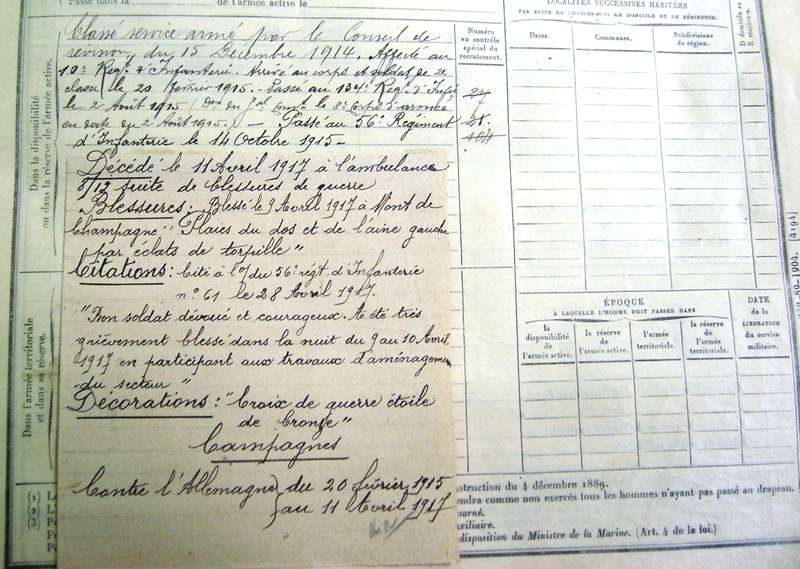 Passé dans
de l'armée active le
LOCALITÉS SUCCESSIVES HABITÉES
PAR SUITE DE CHANGEMENT DE DOMICILE OU DE RÉSIDENCE.
Numéro
au contrôle
spécial du
recrutement.
Dates.
Communes.
Subdivisions
de région.
D. domicile ou
R. résidence.
Dans la disponibilité
ou dans la réserve de l'armée active,
Classé service armé par le Conseil de
révision, du 15 Décembre 1914. Affecté au
10e Régt d'Infanterie. Arrivé au corps et soldat de 2e
classe le 20 février 1915. - Passé au 134e Régt d'Infie
le 2 Août 1915 (Don du Gal Comdt le 8e Corps d'armée
en date du 2 Août 1915.) - Passé au 56e Régiment
d'Infanterie le 14 Octobre 1915 -
Décédé le 11 Avril 1917 à l'ambulance
8/12 suite de blessures de guerre
Blessures : Blessé le 9 Avril 1917 à Mont de
Champagne " Plaies du dos et de l'aine gauche
par éclats de torpille "
Citations : Cité à l'O/ du 56e régt d'Infanterie
n° 61 le 28 Avril 1917.
" Bon soldat dévoué et courageux. A été très
grièvement blessé dans la nuit du 9 au 10 Avril
1917 en participant aux travaux d'aménageme
du secteur "
Décorations : "Croix de guerre étoile
de bronze"
Campagnes
Contre l'Allemagne } du 20 février 1915
au 11 Avril 1917
Dans l'armée territoriale
et dans sa réserve.
ÉPOQUE
À LAQUELLE L'HOMME DOIT PASSER DANS
la
disponibilité
de
l'armée active.
la réserve
de
l'armée active.
l'armée
territoriale.
la réserve
de l'armée
territoriale.
DATE
de la
LIBÉRATION
du service
militaire.
(1)
(2)
(3)
struction du 4 décembre 1889.
endra comme non exercés tous les hommes n'ayant pas passé au drapeau.
ourné.
xiliaire.
disposition du Ministre de la Marine. (Art. 4 de la loi.)
89-1904. [4194]